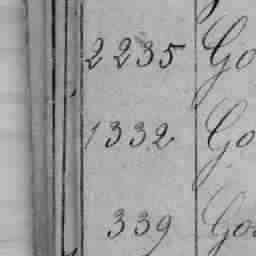 2235 Go
1332 Go
339 Go